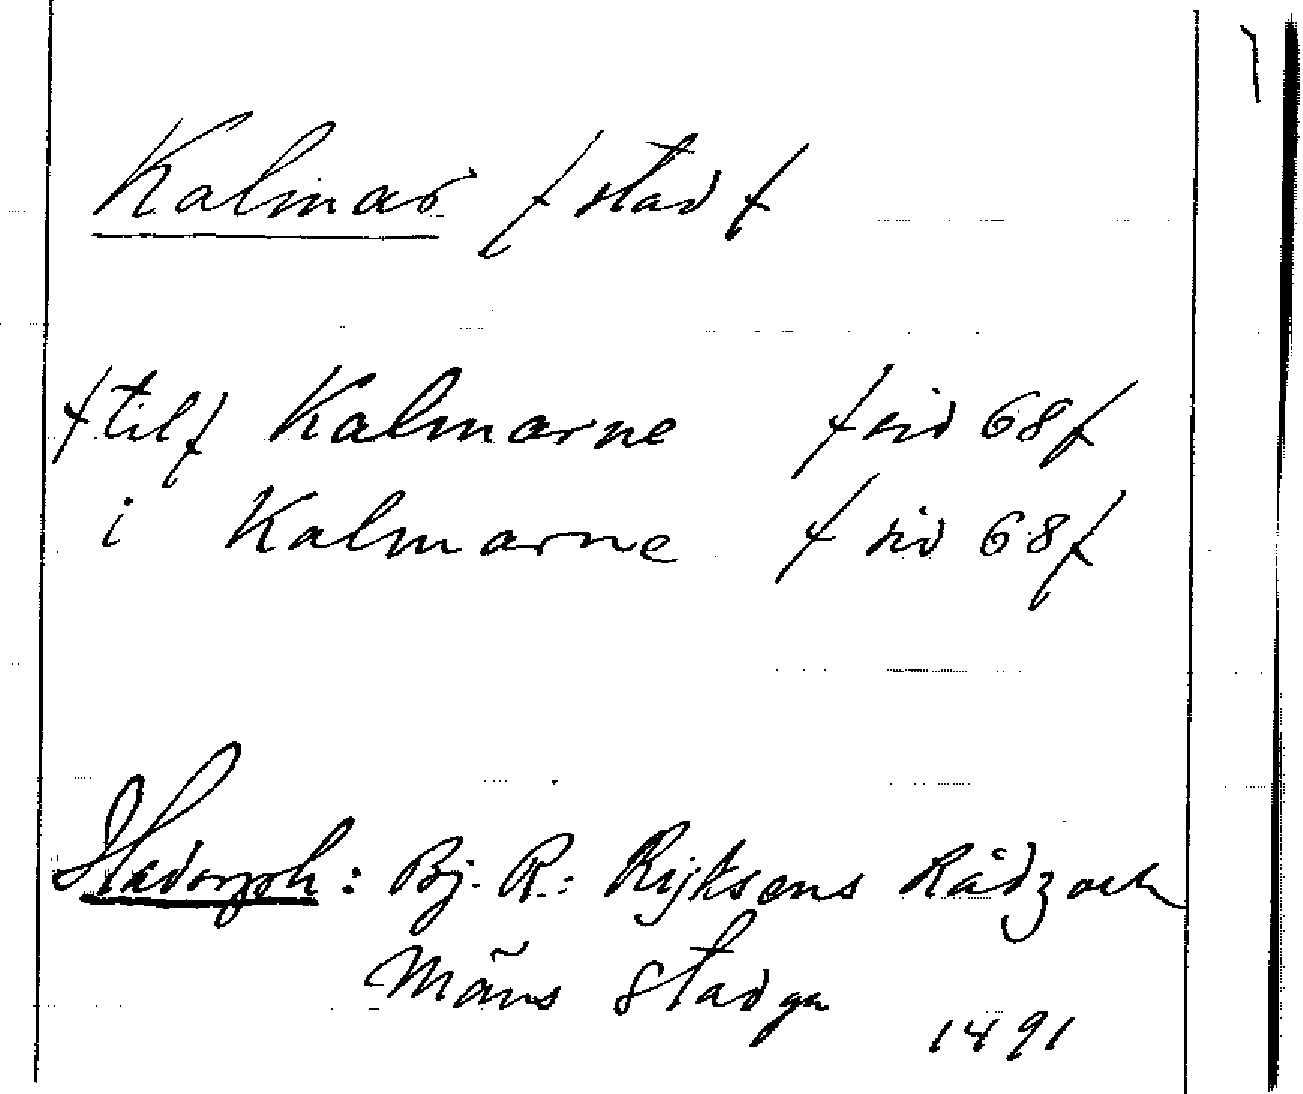 Kalmar /stad/
/til/ Kalmarne /sid 68/
i Kalmarne /sid 68/
Hadorph: Bj. R.: Rijksens Rådz och
Mäns Stadga
1491